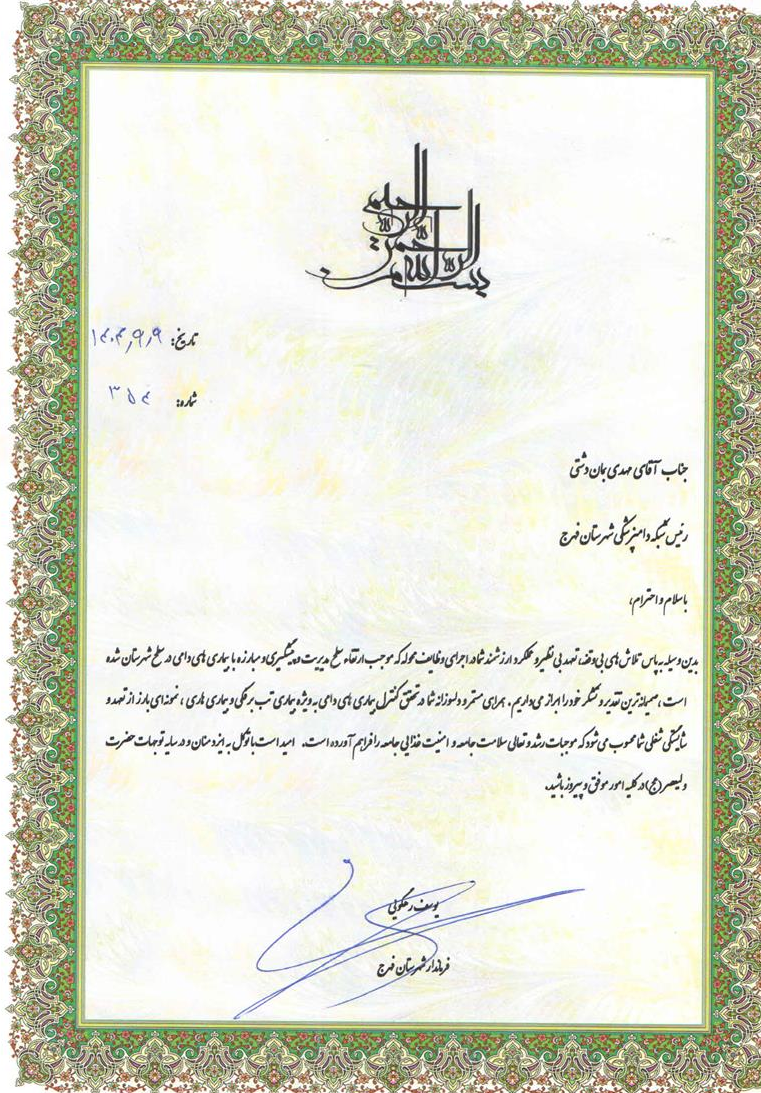 بسم الله الرحمن الرحیم
تاریخ: ۱۴۰۳/۹/۹
شماره: ۳۵۴
جناب آقای مهدی بمان دشتی
رئیس شبکه دامپزشکی شهرستان فهرج
باسلام و احترام؛
بدین وسیله به پاس تلاش های بی وقفه، تعهد بی نظیر و عملکرد ارزشمند شما در اجرای وظایف محوله که موجب ارتقاء سطح مدیریت و پیشگیری و مبارزه با بیماری های دامی در سطح شهرستان شده
است، صمیمانه ترین تقدیر و تشکر خود را ابراز می داریم. همراهی مستمر و دلسوزانه شما در تحقق کنترل بیماری های دامی به ویژه بیماری تب برفکی و بیماری هاری، نمونه ای بارز از تعهد و
شایستگی شغلی شما محسوب می شود که موجبات رشد و تعالی سلامت جامعه و امنیت غذایی جامعه را فراهم آورده است. امید است با توکل به ایزد منان و در سایه توجهات حضرت
ولیعصر (عج) در کلیه امور موفق و پیروز باشید.
یوسف
فرماندار شهرستان فهرج